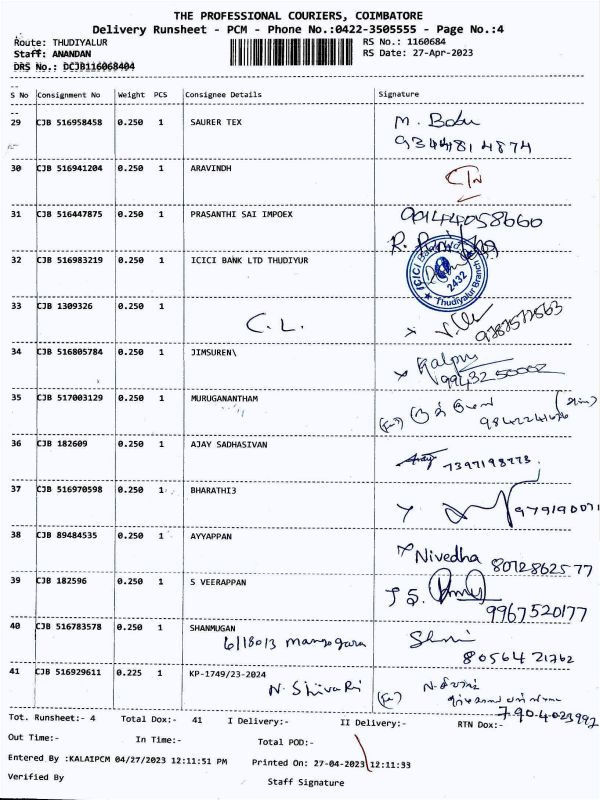 THE PROFESSIONAL COURIERS, COIMBATORE
Delivery Runsheet - PCM - Phone No.:0422-3505555 - Page No.:4
Route: THUDIYALUR RS No.: 1160684
Staff: ANANDAN RS Date: 27-Apr-2023
DRS No.: DCJB116068404
S No Consignment No Weight PCS Consignee Details Signature
29 CJB 516958458 0.250 1 SAURER TEX M. Babu
9344814874
30 CJB 516941204 0.250 1 ARAVINDH
31 CJB 516447875 0.250 1 PRASANTHI SAI IMPOEX
32 CJB 516983219 0.250 1 ICICI BANK LTD THUDIYUR
ICICI Bank Ltd 2432 Thudiyalur Branch
33 CJB 1309326 0.250 1
C.L. 9787577563
34 CJB 516805784 0.250 1 JIMSUREN\ Kalpu
9943250002
35 CJB 517003129 0.250 1 MURUGANANTHAM
36 CJB 182609 0.250 1 AJAY SADHASIVAN
7397198773
37 CJB 516970598 0.250 1 BHARATHI3
38 CJB 89484535 0.250 1 AYYAPPAN Nivedha 8072862577
39 CJB 182596 0.250 1 S VEERAPPAN
9967520177
40 CJB 516783578 0.250 1 SHANMUGAN
8056421762
41 CJB 516929611 0.225 1 KP-1749/23-2024
N. ShivaRi
7904023992
Tot. Runsheet:- 4 Total Dox:- 41 I Delivery:- II Delivery:- RTN Dox:-
Out Time:- In Time:- Total POD:-
Entered By :KALAIPCM 04/27/2023 12:11:51 PM Printed On: 27-04-2023 12:11:33
Verified By Staff Signature